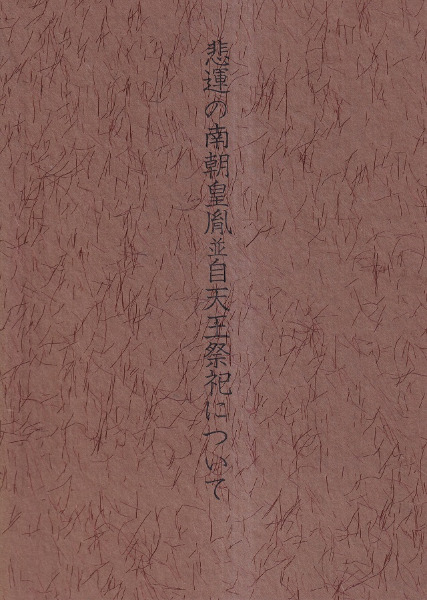 悲運の南朝皇胤並自天王祭祀について